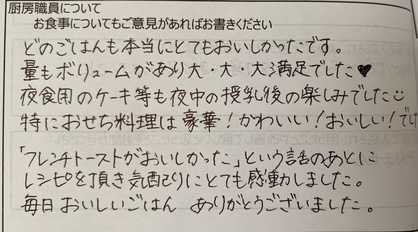 厨房職員について
お食事についてもご意見があればお書きください
どのごはんも本当にとてもおいしかったです。
量もボリュームがあり大・大・大満足でした♥
夜食用のケーキ等も夜中の授乳後の楽しみでした☺
特におせち料理は豪華!かわいい!おいしい!でし
「フレンチトーストがおいしかった」という話のあとに
レシピを頂き気配りにとても感動しました。
毎日おいしいごはん ありがとうございました。